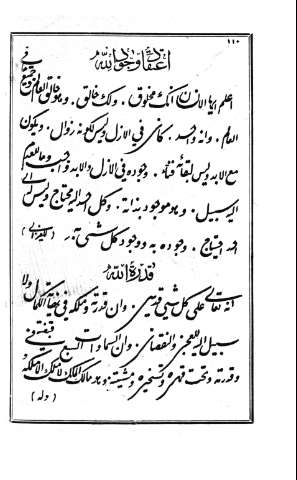 ١١٠
اعتقاد وجود الله
اعلم ايها الانسان انك مخلوق . ولك خالق . وهو خالق العالم وجميع ما في
العالم . وانه واحد . كان في الازل وليس لكونه زوال . ويكون
مع الابد وليس لبقائه فناء . وجوده في الازل والابد واجب وما للعدم
اليه سبيل . وهو موجود بذاته . وكل احد اليه محتاج وليس له الى
احد احتياج . وجوده به ووجود كل شيء به .
قدرة الله
انه تعالى على كل شيء قدير . وان قدرته وملكه في نهاية الكمال ولا
سبيل اليه للعجز والنقصان . وان السموات السبع في قبضته وفي
وقدرته وتحت قهره وتسخيره ومشيئته . وهو مالك الملك لا ملك الا ملكه
(وله)